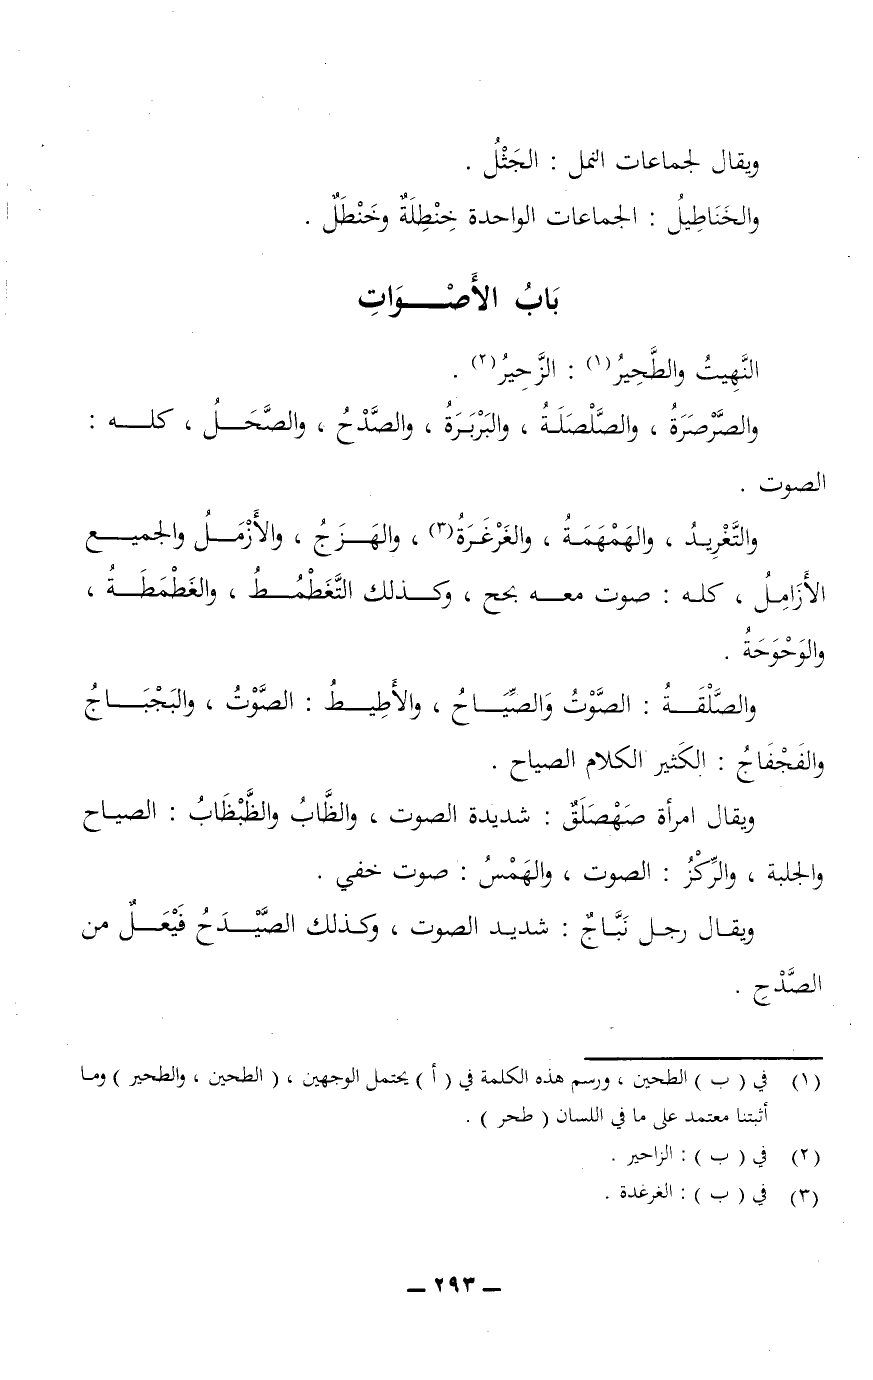 ويقال لجماعات النمل : الجَثْلُ .
والخَنَاطِيلُ : الجماعات الواحدة خِنْطِلَةٌ وخَنْطَلٌ .
بَابُ الأَصْوَاتِ
النَّهِيتُ والطَّحِيرُ(١) : الزَّحِيرُ(٢) .
والصَّرْصَرَةُ ، والصَّلْصَلَةُ ، والبَرْبَرَةُ ، والصَّدْحُ ، والصَّحَلُ ، كله :
الصوت .
والتَّغْرِيدُ ، والهَمْهَمَةُ ، والغَرْغَرَةُ(٣) ، والهَزَجُ ، والأَزْمَلُ والجميع
الأَزَامِلُ ، كله : صوت معه بحح ، وكذلك التَّغَطْمُطُ ، والغَطْمَطَةُ ،
والوَحْوَحَةُ .
والصَّلْقَةُ : الصَّوْتُ وَالصِّيَاحُ ، والأَطِيطُ : الصَّوْتُ ، والبَجْبَاجُ
والفَجْفَاجُ : الكَثير الكلام الصياح .
ويقال امرأة صَهْصَلَقٌ : شديدة الصوت ، والظَّابُ والظَّبْظَابُ : الصياح
والجلبة ، والرِّكْزُ : الصوت ، والهَمْسُ : صوت خفي .
ويقال رجل نَبَّاجٌ : شديد الصوت ، وكذلك الصَّيْدَحُ فَيْعَلٌ من
الصَّدْحِ .
(١) في ( ب ) الطحين ، ورسم هذه الكلمة في ( أ ) يحتمل الوجهين ، ( الطحين ، والطحير ) وما
أثبتنا معتمد على ما في اللسان ( طحر ) .
(٢) في ( ب ) : الزاحير .
(٣) في ( ب ) : الغرغدة .
ـ ٢٩٣ ـ